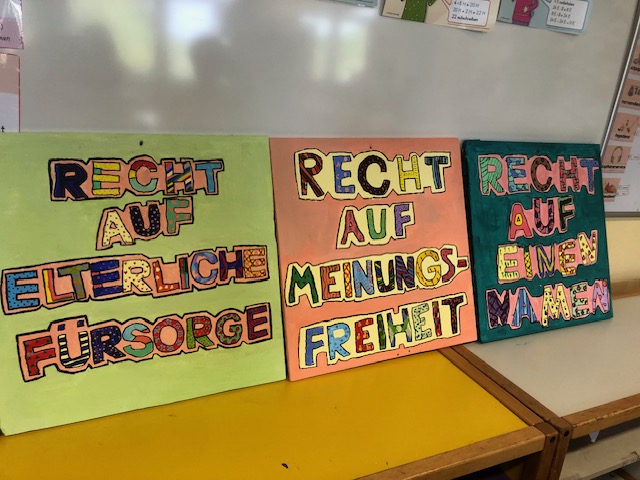 RECHT
AUF
ELTERLICHE
FÜRSORGE
RECHT
AUF
MEINUNGS-
FREIHEIT
RECHT
AUF
EINEN
NAMEN